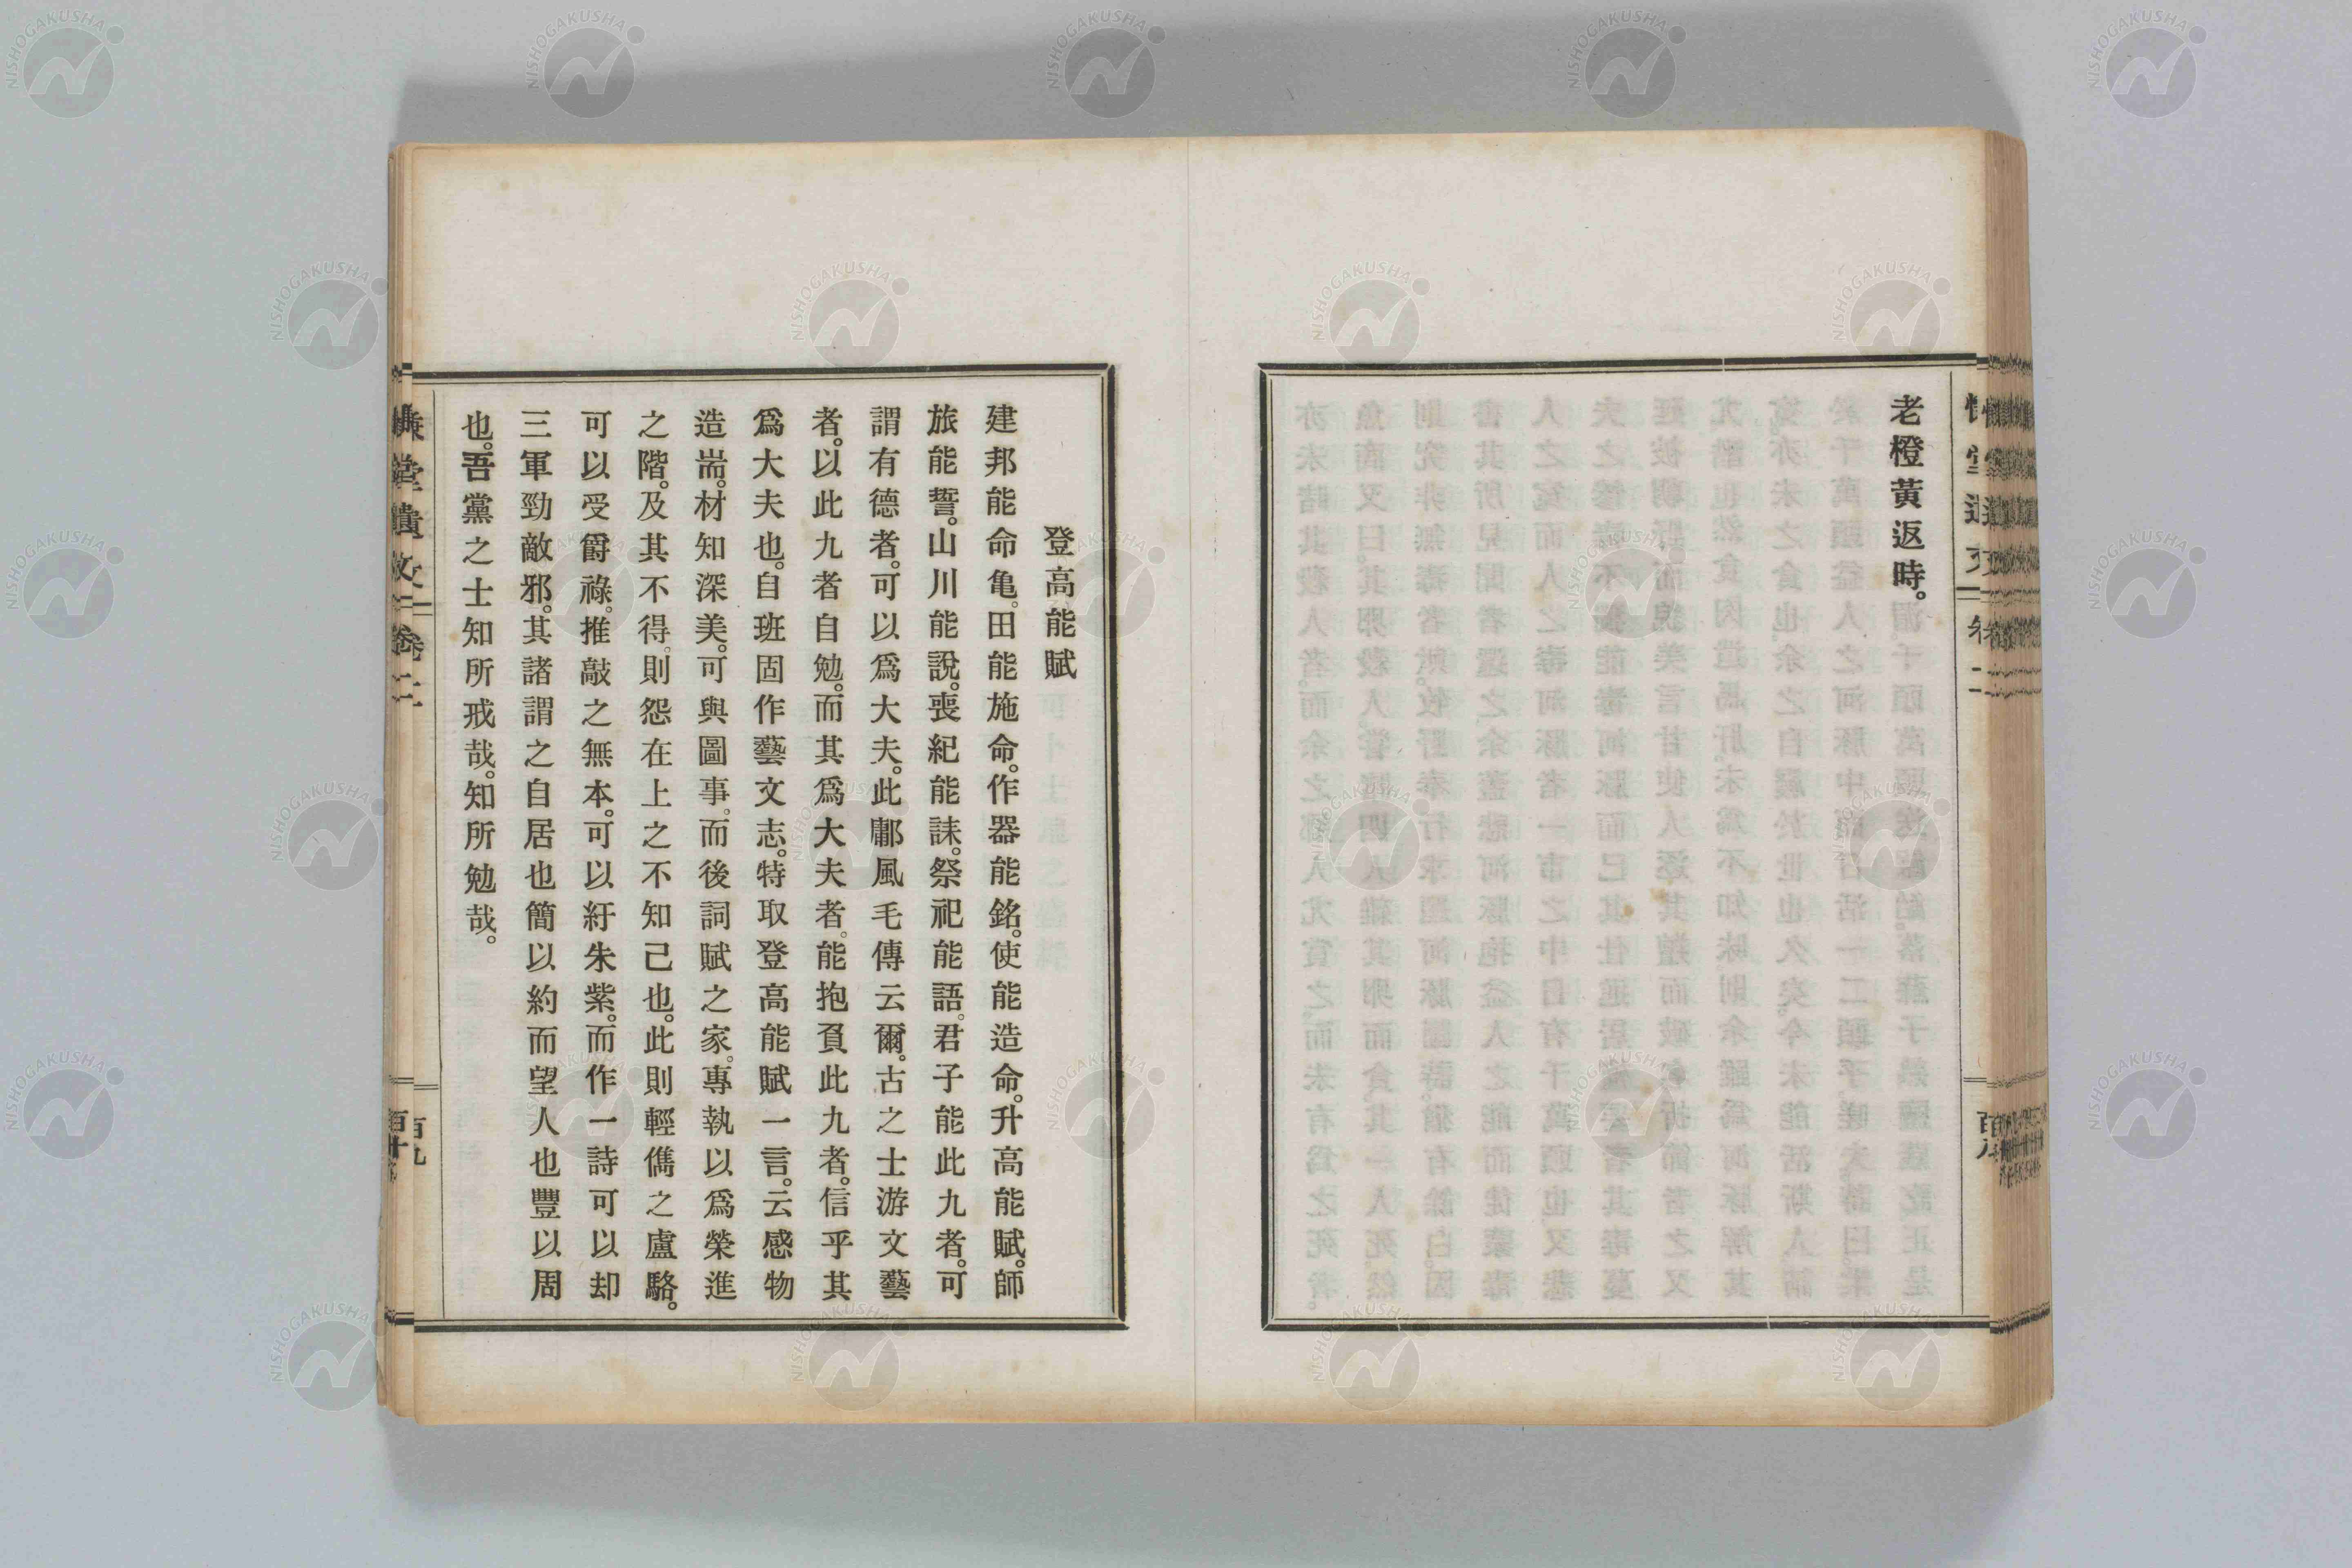 老橙黃返時。
登高能賦
建邦能命亀。田能施命。作器能銘。使能造命。升高能賦。師
旅能誓。山川能說。喪紀能誄。祭祀能語。君子能此九者。可
謂有德者。可以爲大夫。此鄘風毛傳云爾。古之士游文藝
者。以此九者自勉。而其爲大夫者。能抱負此九者。信乎其
爲大夫也。自班固作藝文志。特取登高能賦一言。云感物
造耑。材知深美。可與圖事。而後詞賦之家。專執以爲榮進
之階。及其不得。則怨在上之不知己也。此則輕儁之盧駱。
可以受爵祿。推敲之無本。可以紆朱紫。而作一詩可以却
三軍勁敵邪。其諸謂之自居也簡以約而望人也豐以周
也。吾黨之士知所戒哉。知所勉哉。
NISHOGAKUSHA